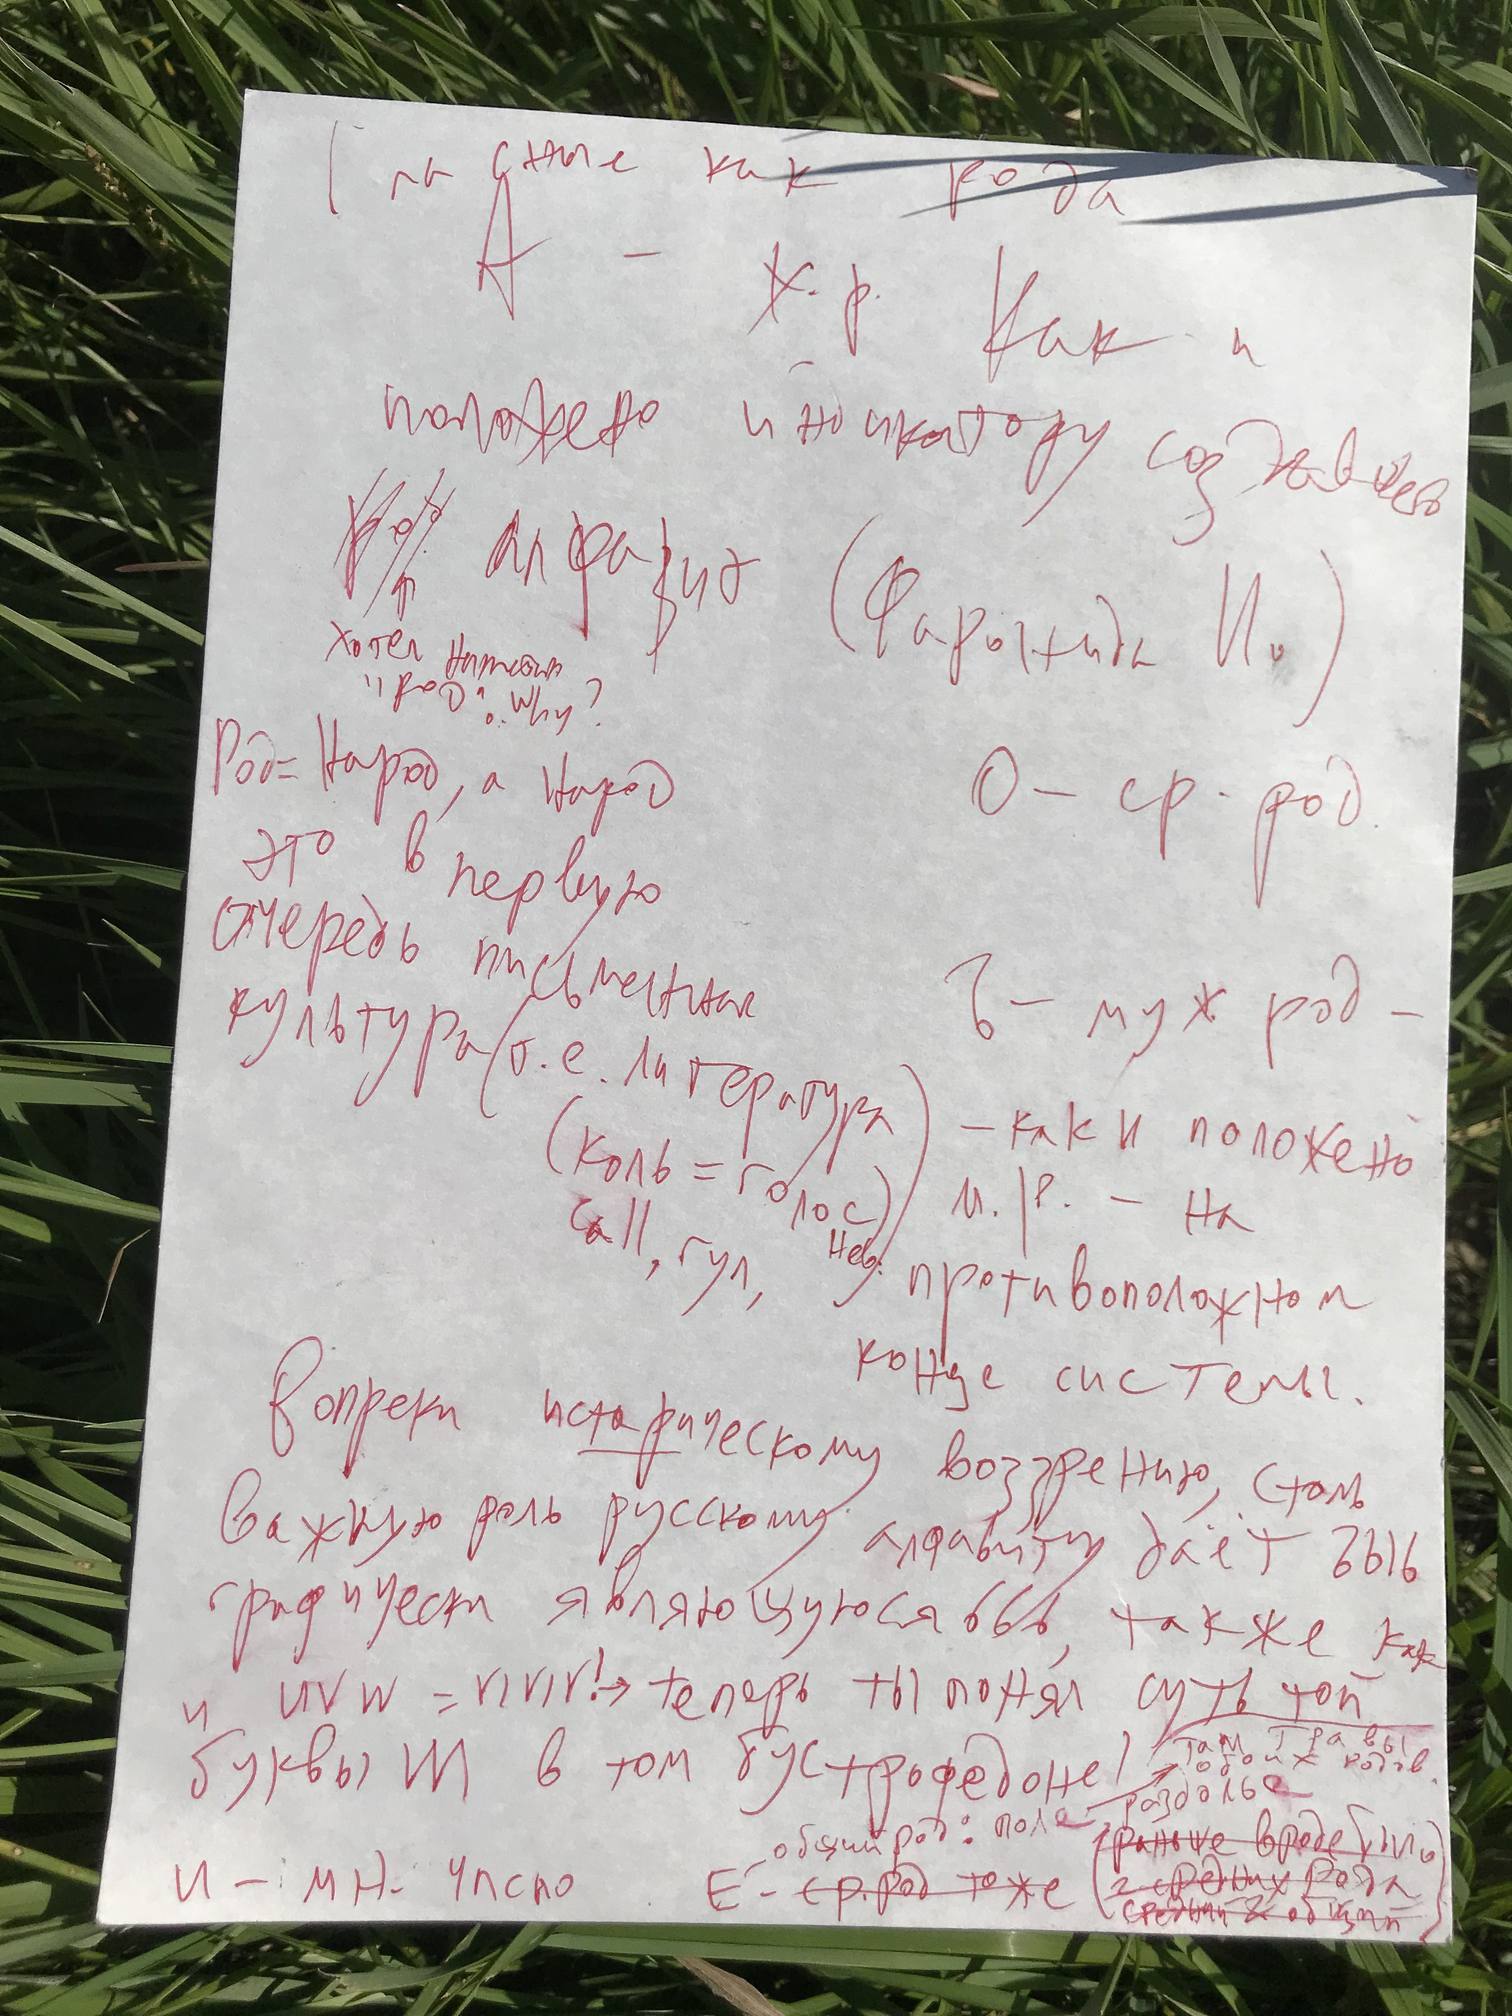 Гласные как рода
А - ж.р. Как и
положено индикатору создавшего
алфавит (Фарончида И.)
Хотел написать
"род". Why?
Род = Народ, а народ
это в первую
очередь письменная
культура (т.е. литература)
(коль = голос)
call, гул,
О - ср. род.
Ъ - муж род -
- как и положено
м.р. - на
противоположном
конце системы.
Вопреки историческому воззрению, столь
важную роль русскому алфавиту даёт ЪЫЬ
графически являющуюся ььь, также как
и UVW = VIVIV! → теперь ты понял суть той
буквы Ш в том бустрофедоне!
там травы
обоих родов.
общий род: поле, раздолье
И - мн. число
Е - ср. род тоже (раньше вроде было
2 средних рода
средний & общий)